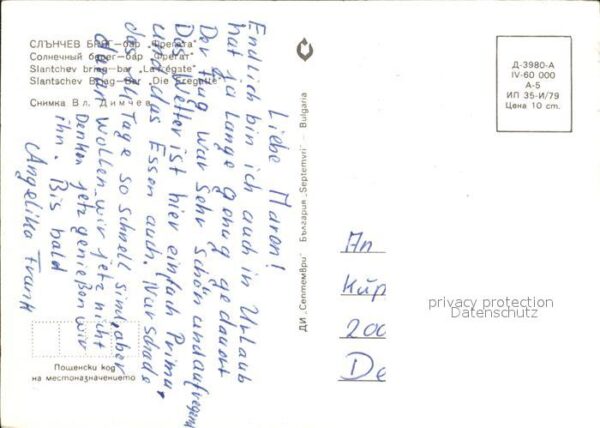 СЛЪНЧЕВ БРЯГ—бар „Фрегата"
Солнечный берег—бар „Фрегат"
Slantchev briag—bar „La frégate"
Slantschev Briag—Bar „Die Fregatte"
Снимка Вл. Димчев
Liebe Maron!
Endlich bin ich auch in Urlaub
hat ja lange genug gedauert
Der Flug war sehr schön und aufregend
Das Wetter ist hier einfach Prima,
und das Essen auch. Nur schade
das die Tage so schnell sind, aber
daran wollen wir jetz nicht
Denken jetz genießen wir
ihn. Bis bald
Angelika Frank
Пощенски код
на местоназначението
ДИ „Септември" България „Septemvri" — Bulgaria
Д-3980-А
IV-60 000
А-5
ИП 35-И/79
Цена 10 ст.
An
Küp
200
De
privacy protection
Datenschutz